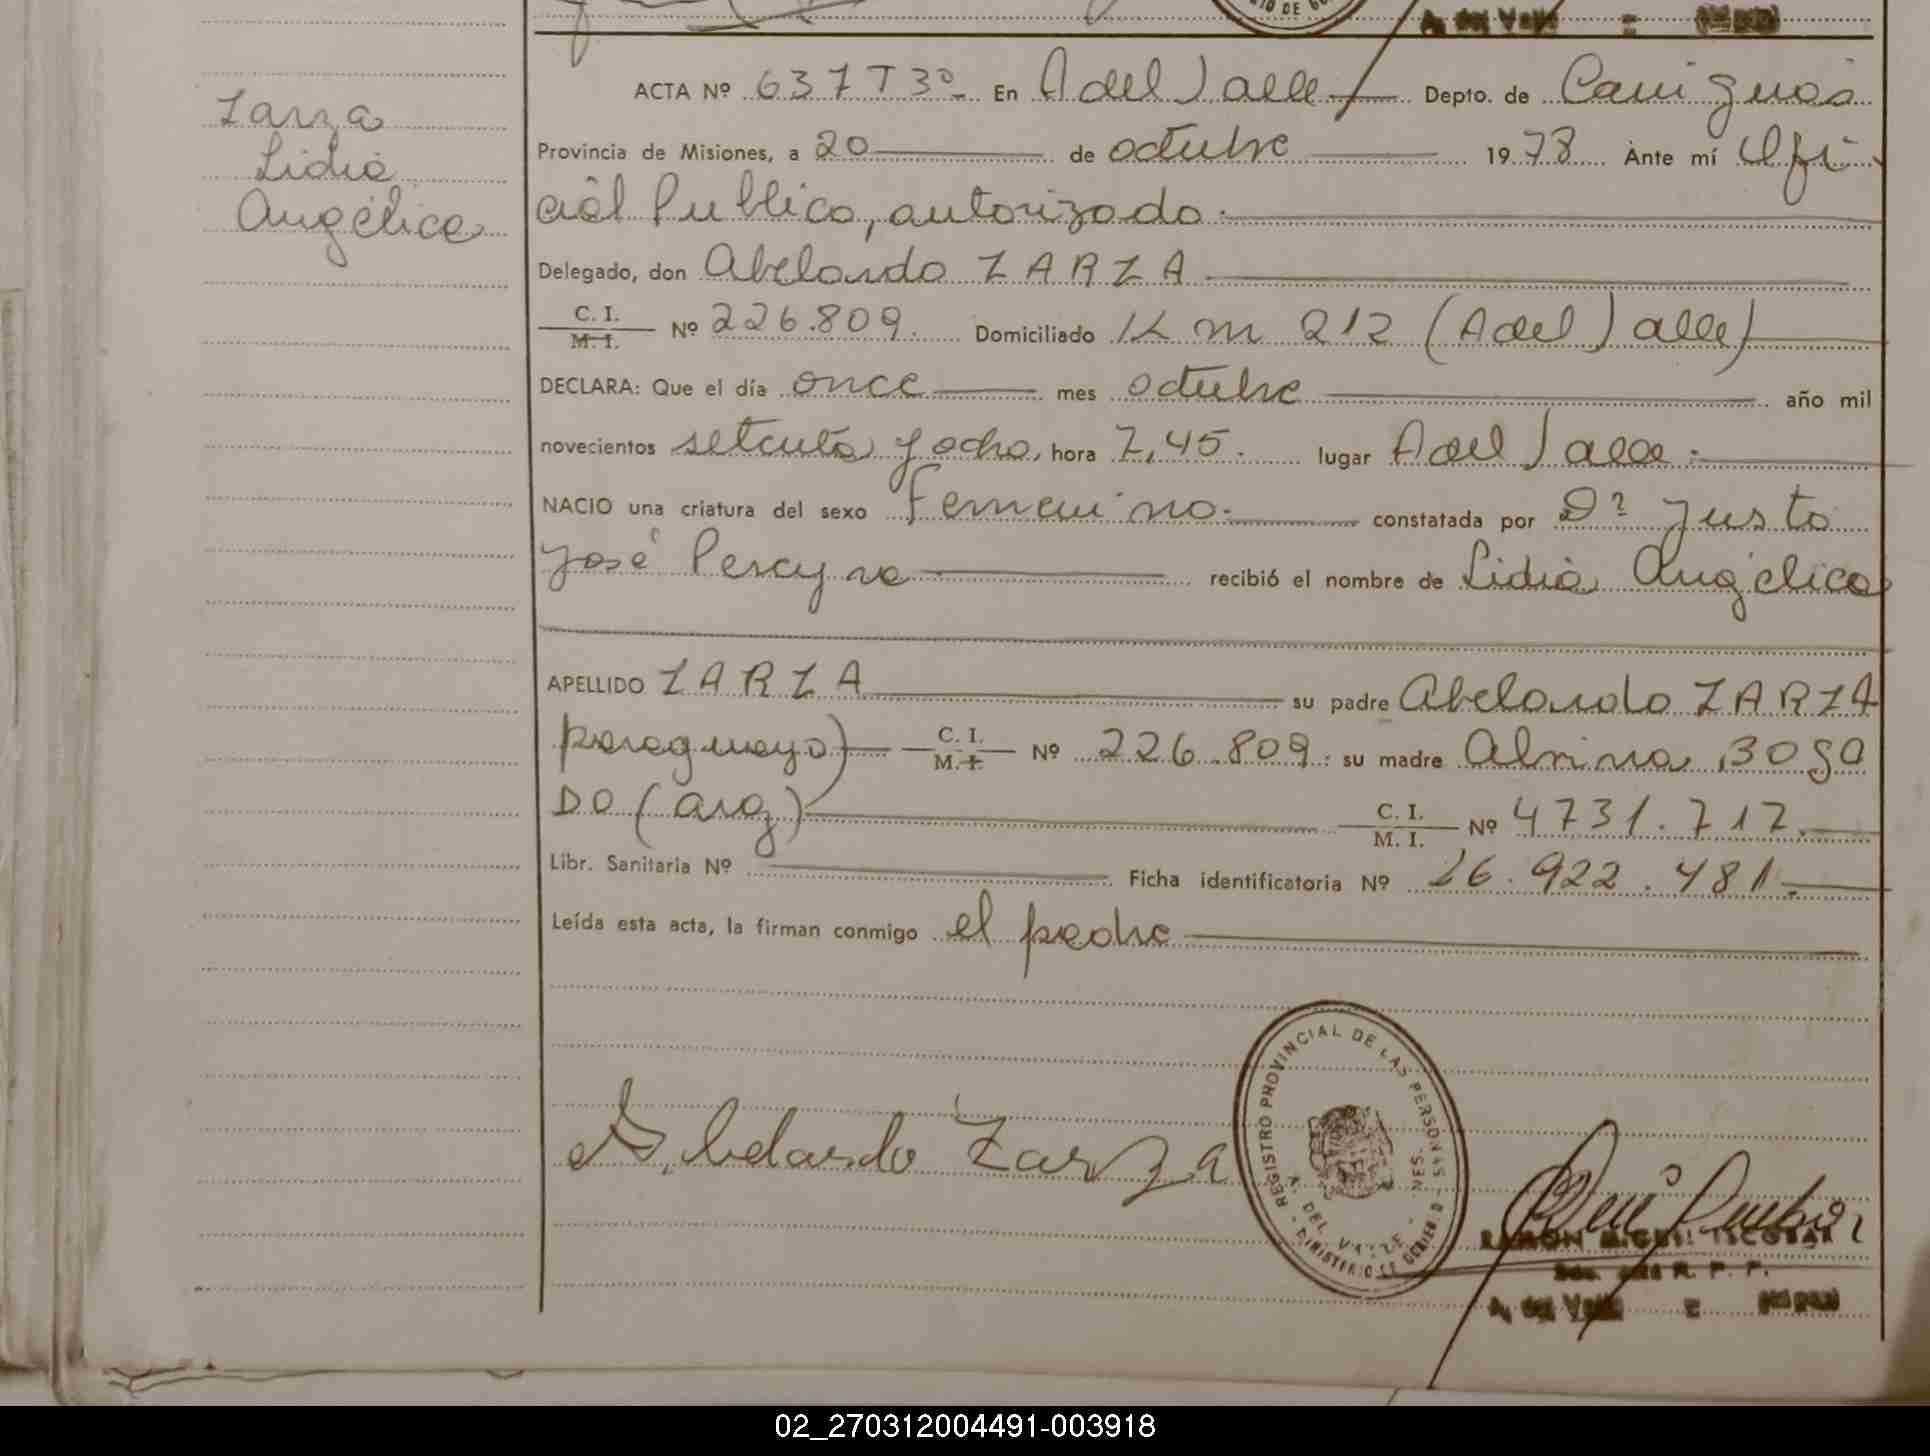 A. del Valle = (Mnes)
Zarza
Lidia
Angélica
ACTA Nº 637 T 3º En A del Valle Depto. de Cainguás
Provincia de Misiones, a 20 de octubre 1978 Ante mí Ofi-
cial Publico, autorizado.
Delegado, don Abelardo ZARZA
C. I.
M. I. Nº 226.809. Domiciliado Km 212 (A del Valle)
DECLARA: Que el día once mes octubre año mil
novecientos setenta y ocho, hora 7,45. lugar A del Valle.
NACIO una criatura del sexo Femenino. constatada por Dº Justo
José Pereyra recibió el nombre de Lidia Angélica
APELLIDO ZARZA su padre Abelardo ZARZA
paraguayo) C. I.
M. I. Nº 226.809. su madre Albina BOGA
DO (arg) C. I.
M. I. Nº 4731.717.
Libr. Sanitaria Nº Ficha identificatoria Nº 26.922.481.
Leída esta acta, la firman conmigo el padre
Abelardo Zarza
REGISTRO PROVINCIAL DE LAS PERSONAS
A. DEL VALLE - MNES.
MINISTERIO DE GOBIERNO
RAMON MIGUEL ESCOBAR
R. P. P.
A. del Valle = (Mnes)
02_270312004491-003918